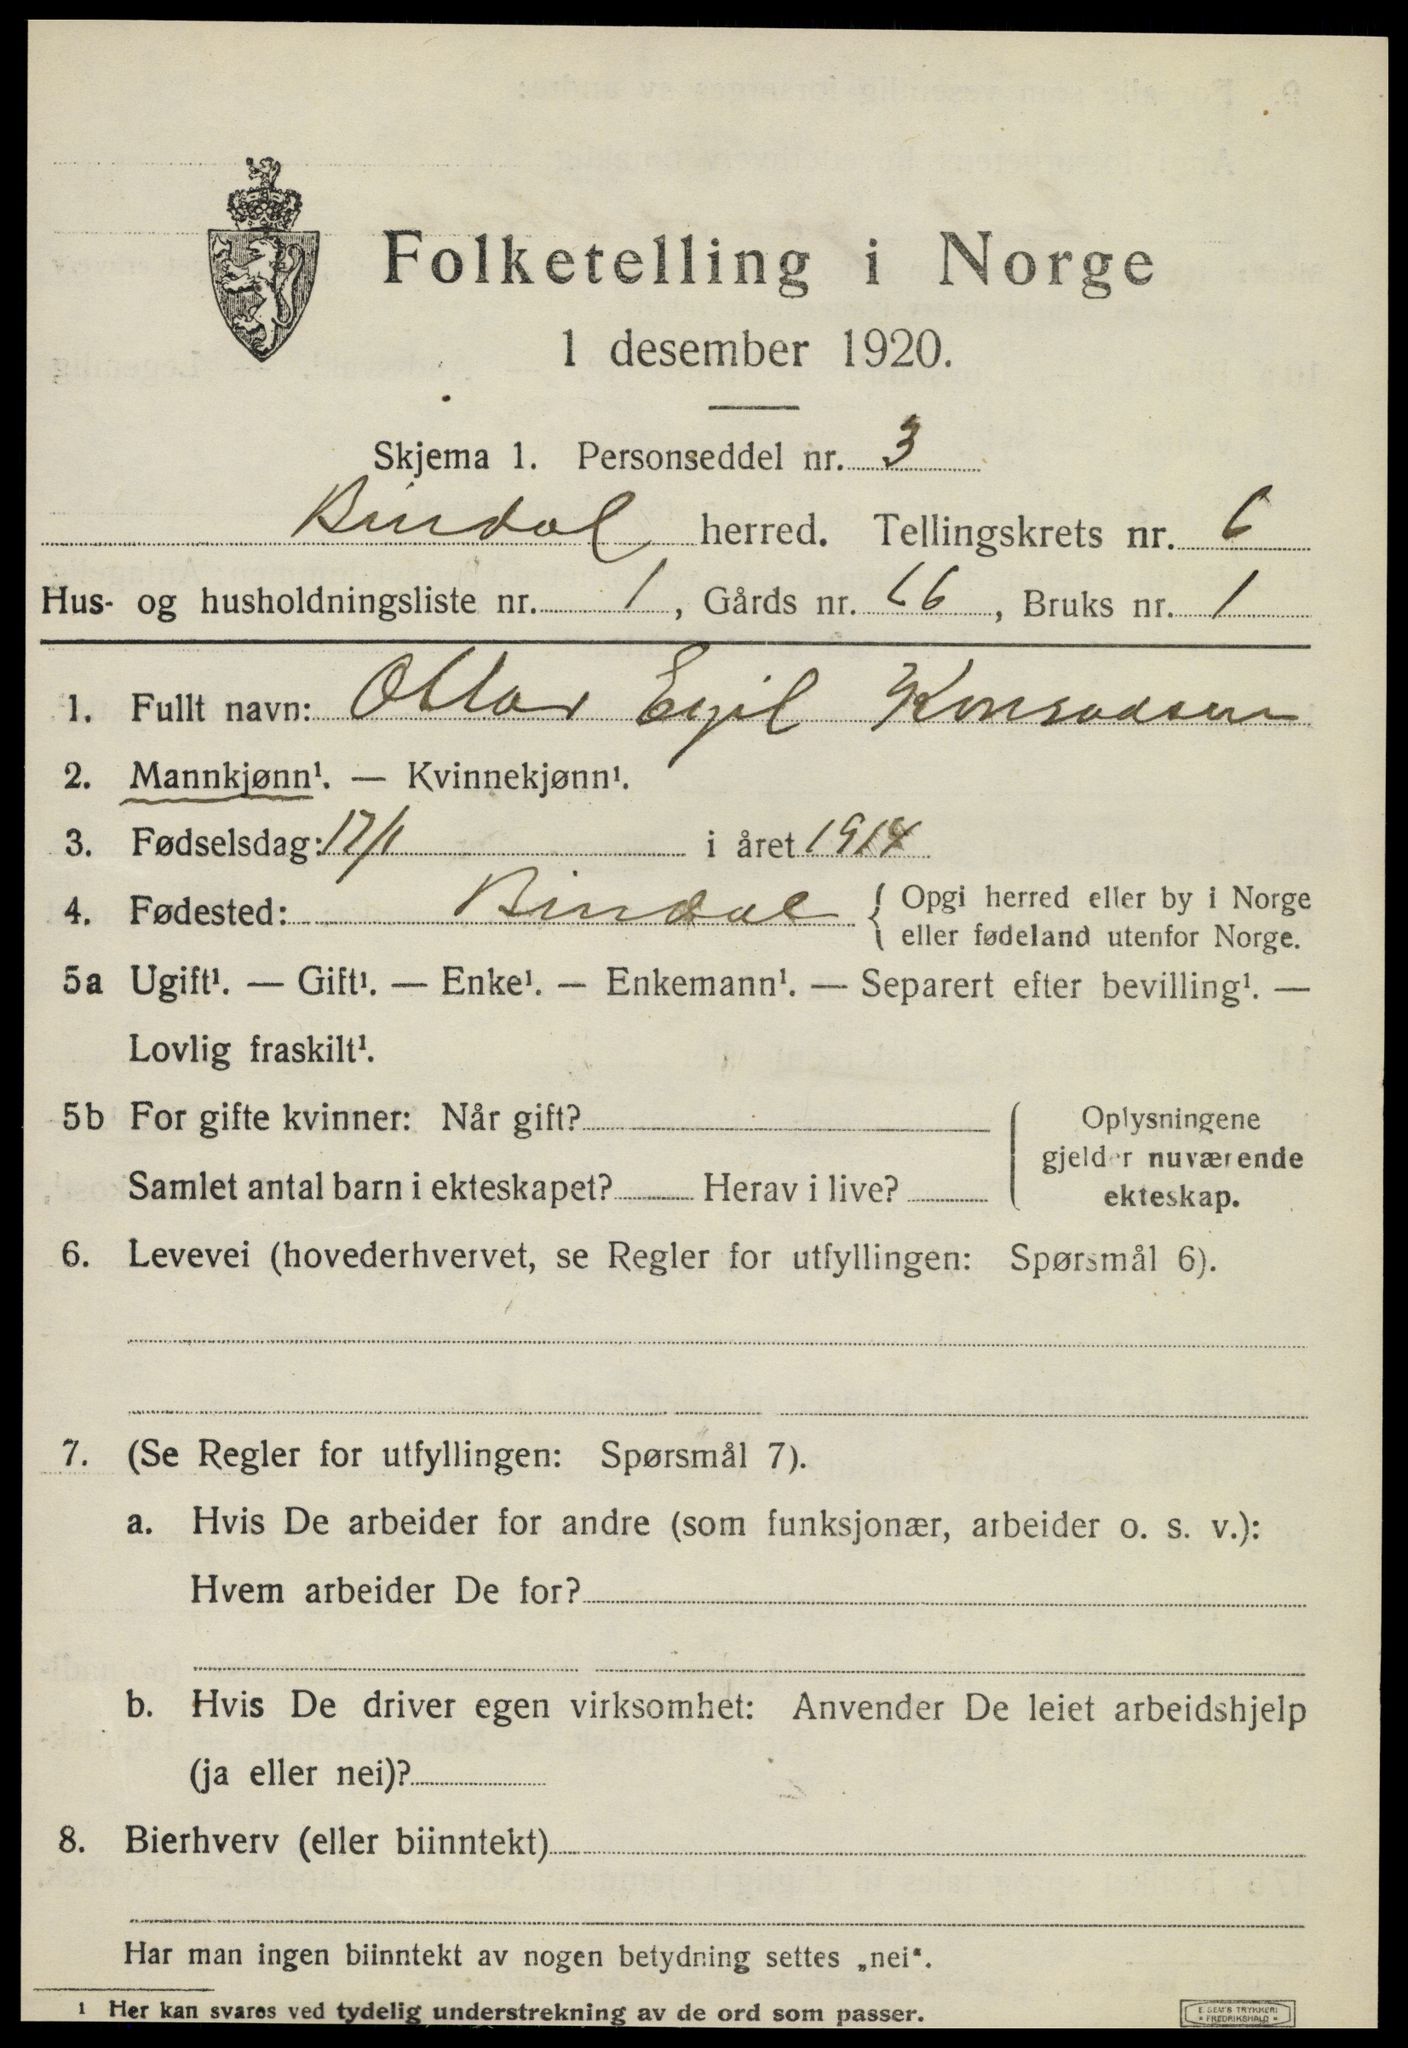 Folketelling i Norge
1 desember 1920.
Skjema 1. Personseddel nr. 3
Bindal herred. Tellingskrets nr. 6
Hus- og husholdningsliste nr. 1, Gårds nr. 66, Bruks nr. 1
1. Fullt navn: Ottar Egil Konradsen
2. Mannkjønn¹. — Kvinnekjønn¹.
3. Fødselsdag: 17/1 i året 1914
4. Fødested: Bindal { Opgi herred eller by i Norge
eller fødeland utenfor Norge.
5a Ugift¹. — Gift¹. — Enke¹. — Enkemann¹. — Separert efter bevilling¹. —
Lovlig fraskilt¹.
5b For gifte kvinner: Når gift?
Samlet antal barn i ekteskapet? Herav i live?
Oplysningene
gjelder nuværende
ekteskap.
6. Levevei (hovederhvervet, se Regler for utfyllingen: Spørsmål 6).
7. (Se Regler for utfyllingen: Spørsmål 7).
a. Hvis De arbeider for andre (som funksjonær, arbeider o. s. v.):
Hvem arbeider De for?
b. Hvis De driver egen virksomhet: Anvender De leiet arbeidshjelp
(ja eller nei)?
8. Bierhverv (eller biinntekt)
Har man ingen biinntekt av nogen betydning settes „nei“.
¹ Her kan svares ved tydelig understrekning av de ord som passer.
E SEM'S TRYKKERI
* FREDRIKSHALD *